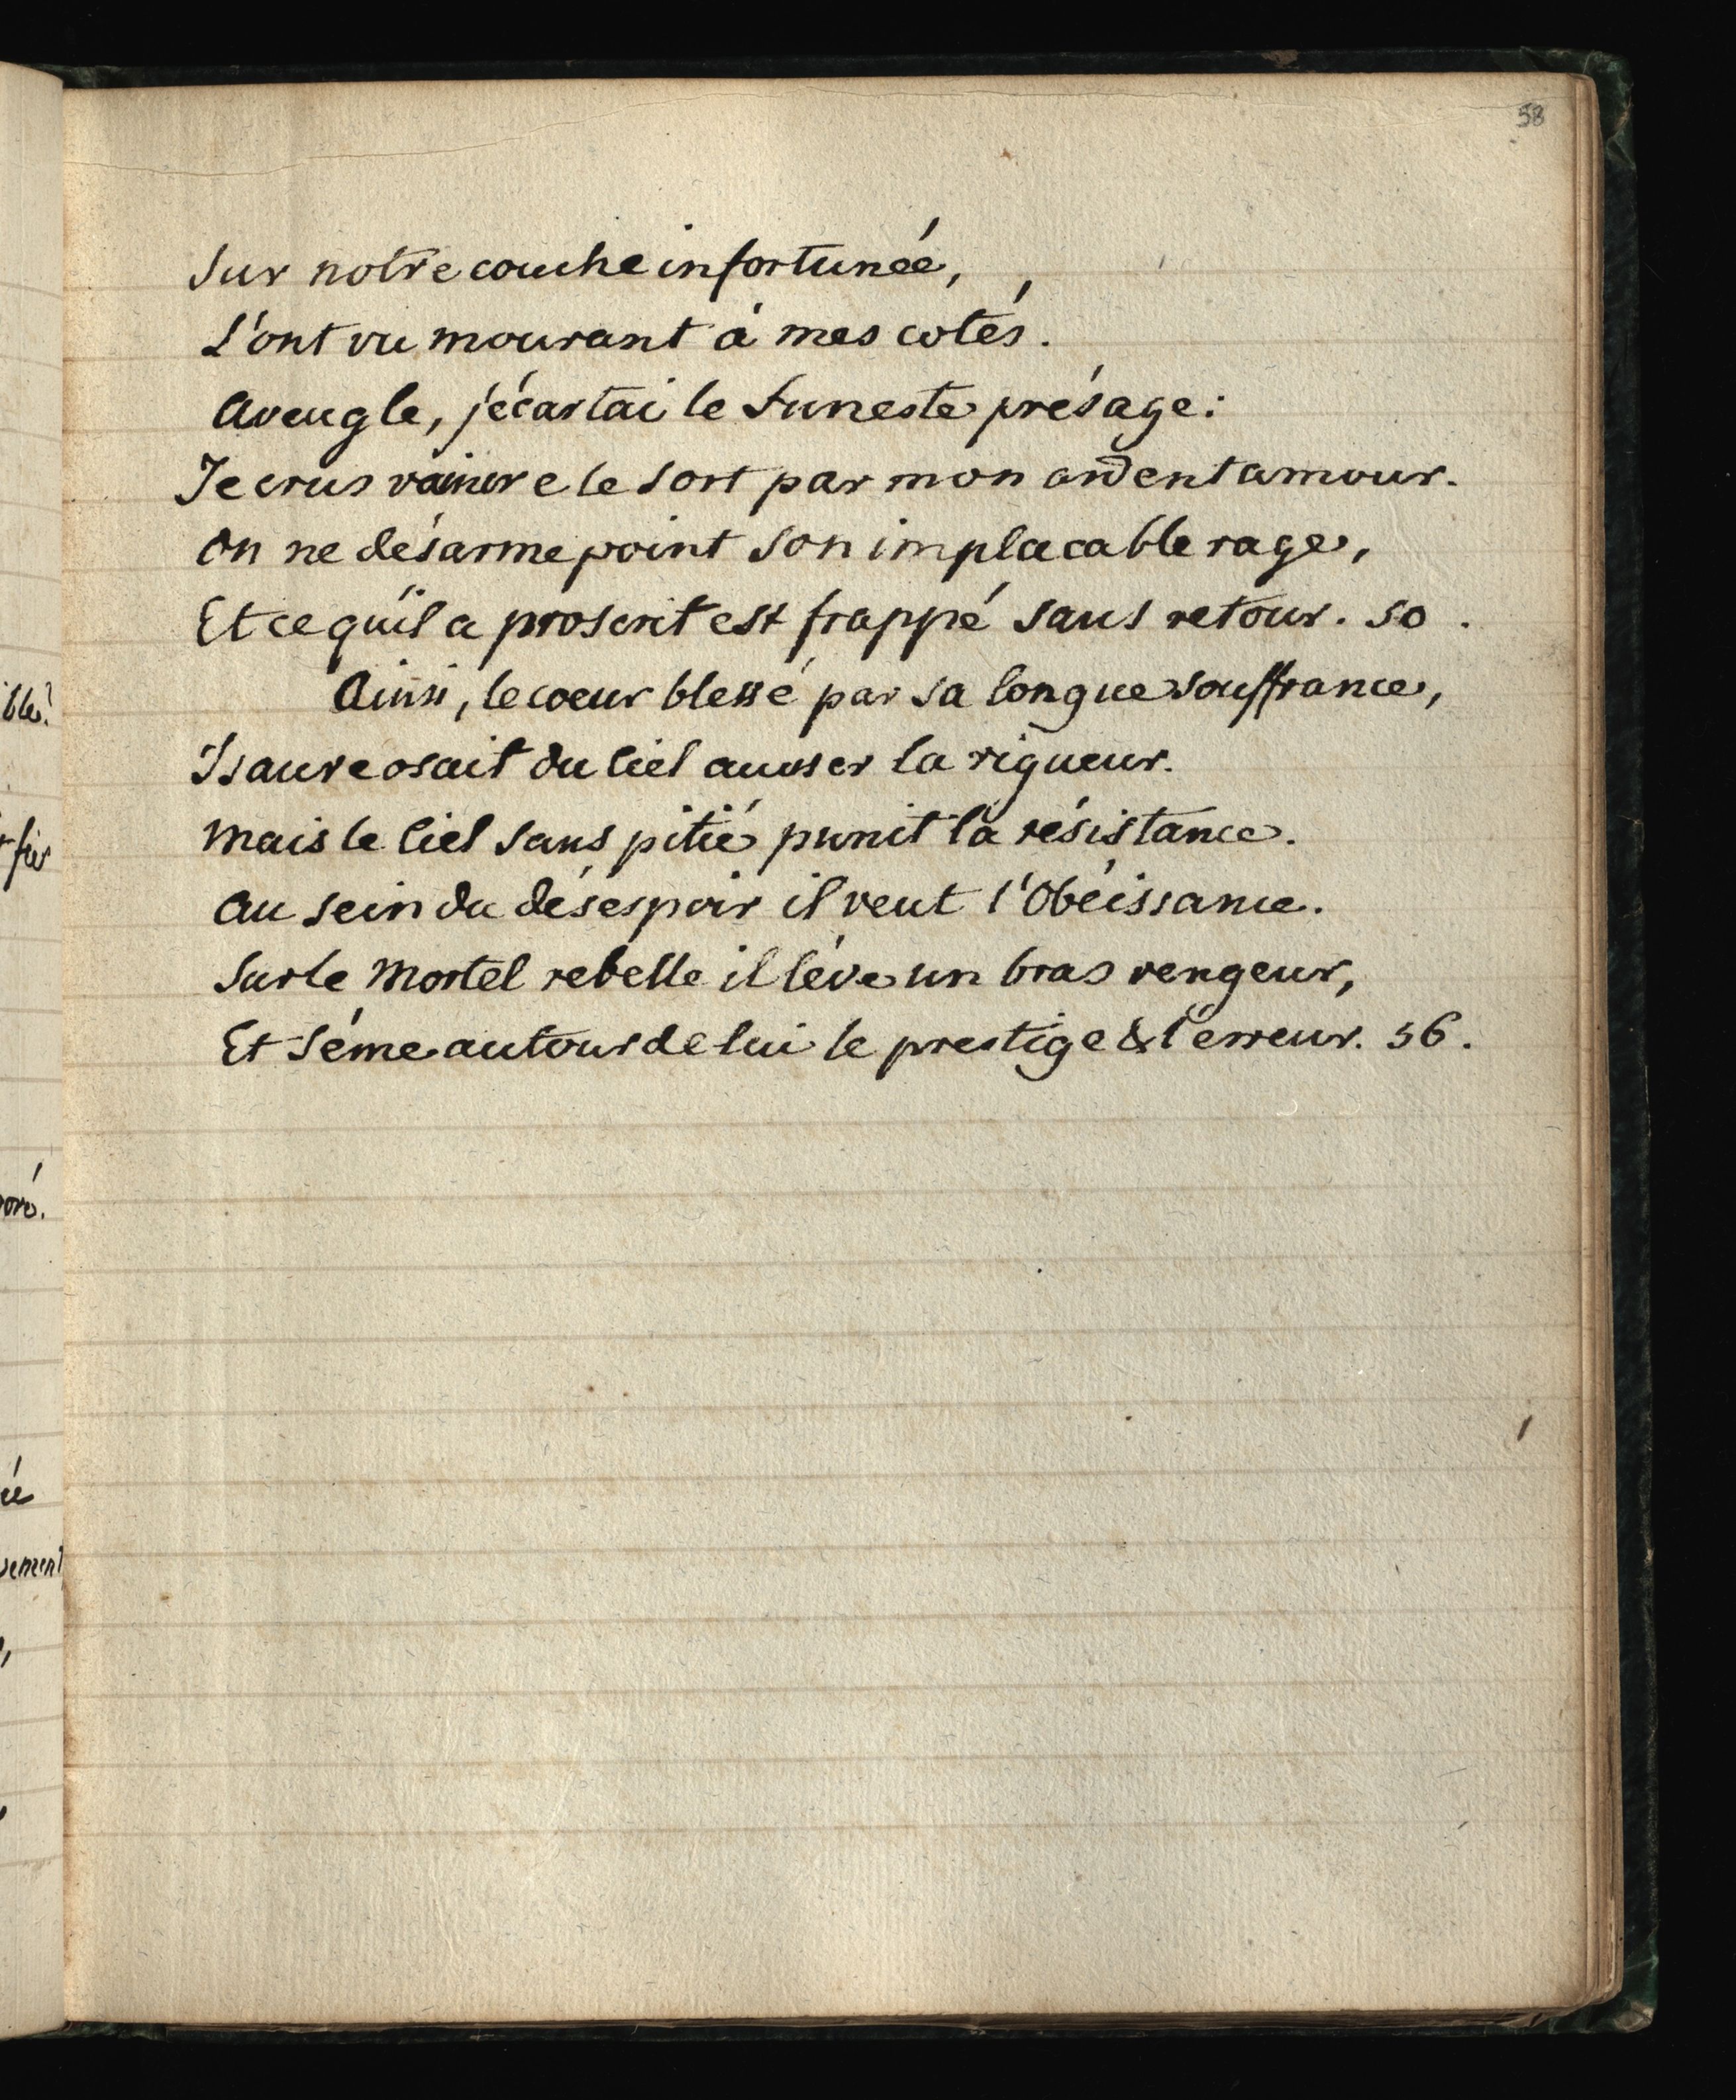 58
Sur notre couche infortunée,
L'ont vu mourant à mes cotés.
Aveugle, j'écartai le funeste présage:
Je crus vaincre le sort par mon ardent amour.
On ne désarme point son implacable rage,
Et ce qu'il a proscrit est frappé sans retour. 50.
Ainsi, le coeur blessé par sa longue souffrance,
Isaure osait du Ciel accuser la rigueur.
Mais le Ciel sans pitié punit la résistance.
Au sein du désespoir il veut l'Obéissance.
Sur le Mortel rebelle il lève un bras vengeur,
Et séme autour de lui le prestige & l'erreur. 56.